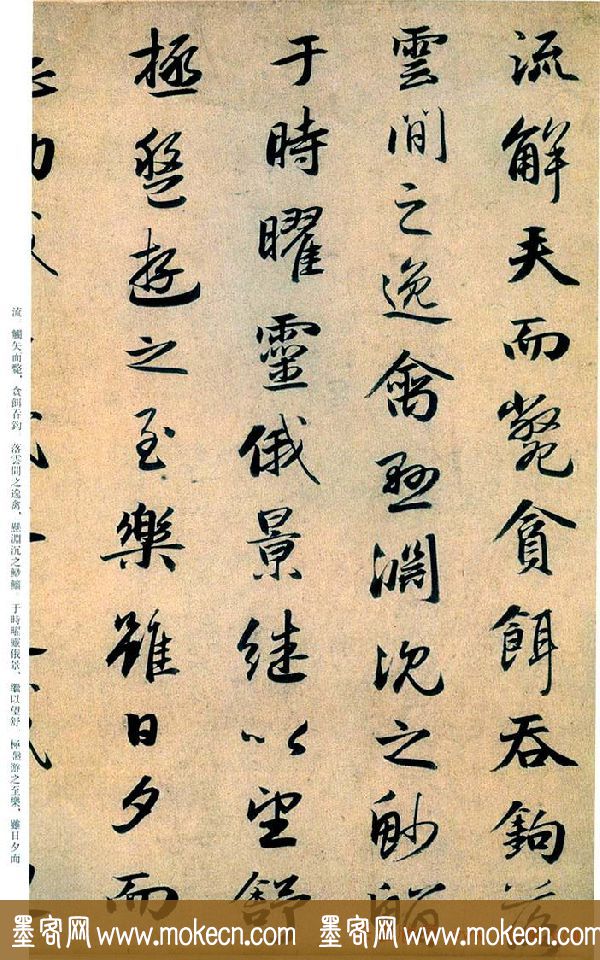 流觸矢而斃貪餌吞鉤落
雲間之逸禽懸淵沉之魦鰡
于時曜靈俄景継以望舒
極盤遊之至樂雖日夕而
流 觸矢而斃，貪餌吞鈎 落雲間之逸禽，懸淵沉之魦鰡。于時曜靈俄景，繼以望舒 極盤游之至樂，雖日夕而
墨客网 www.mokecn.com 墨客网 www.mokecn.com